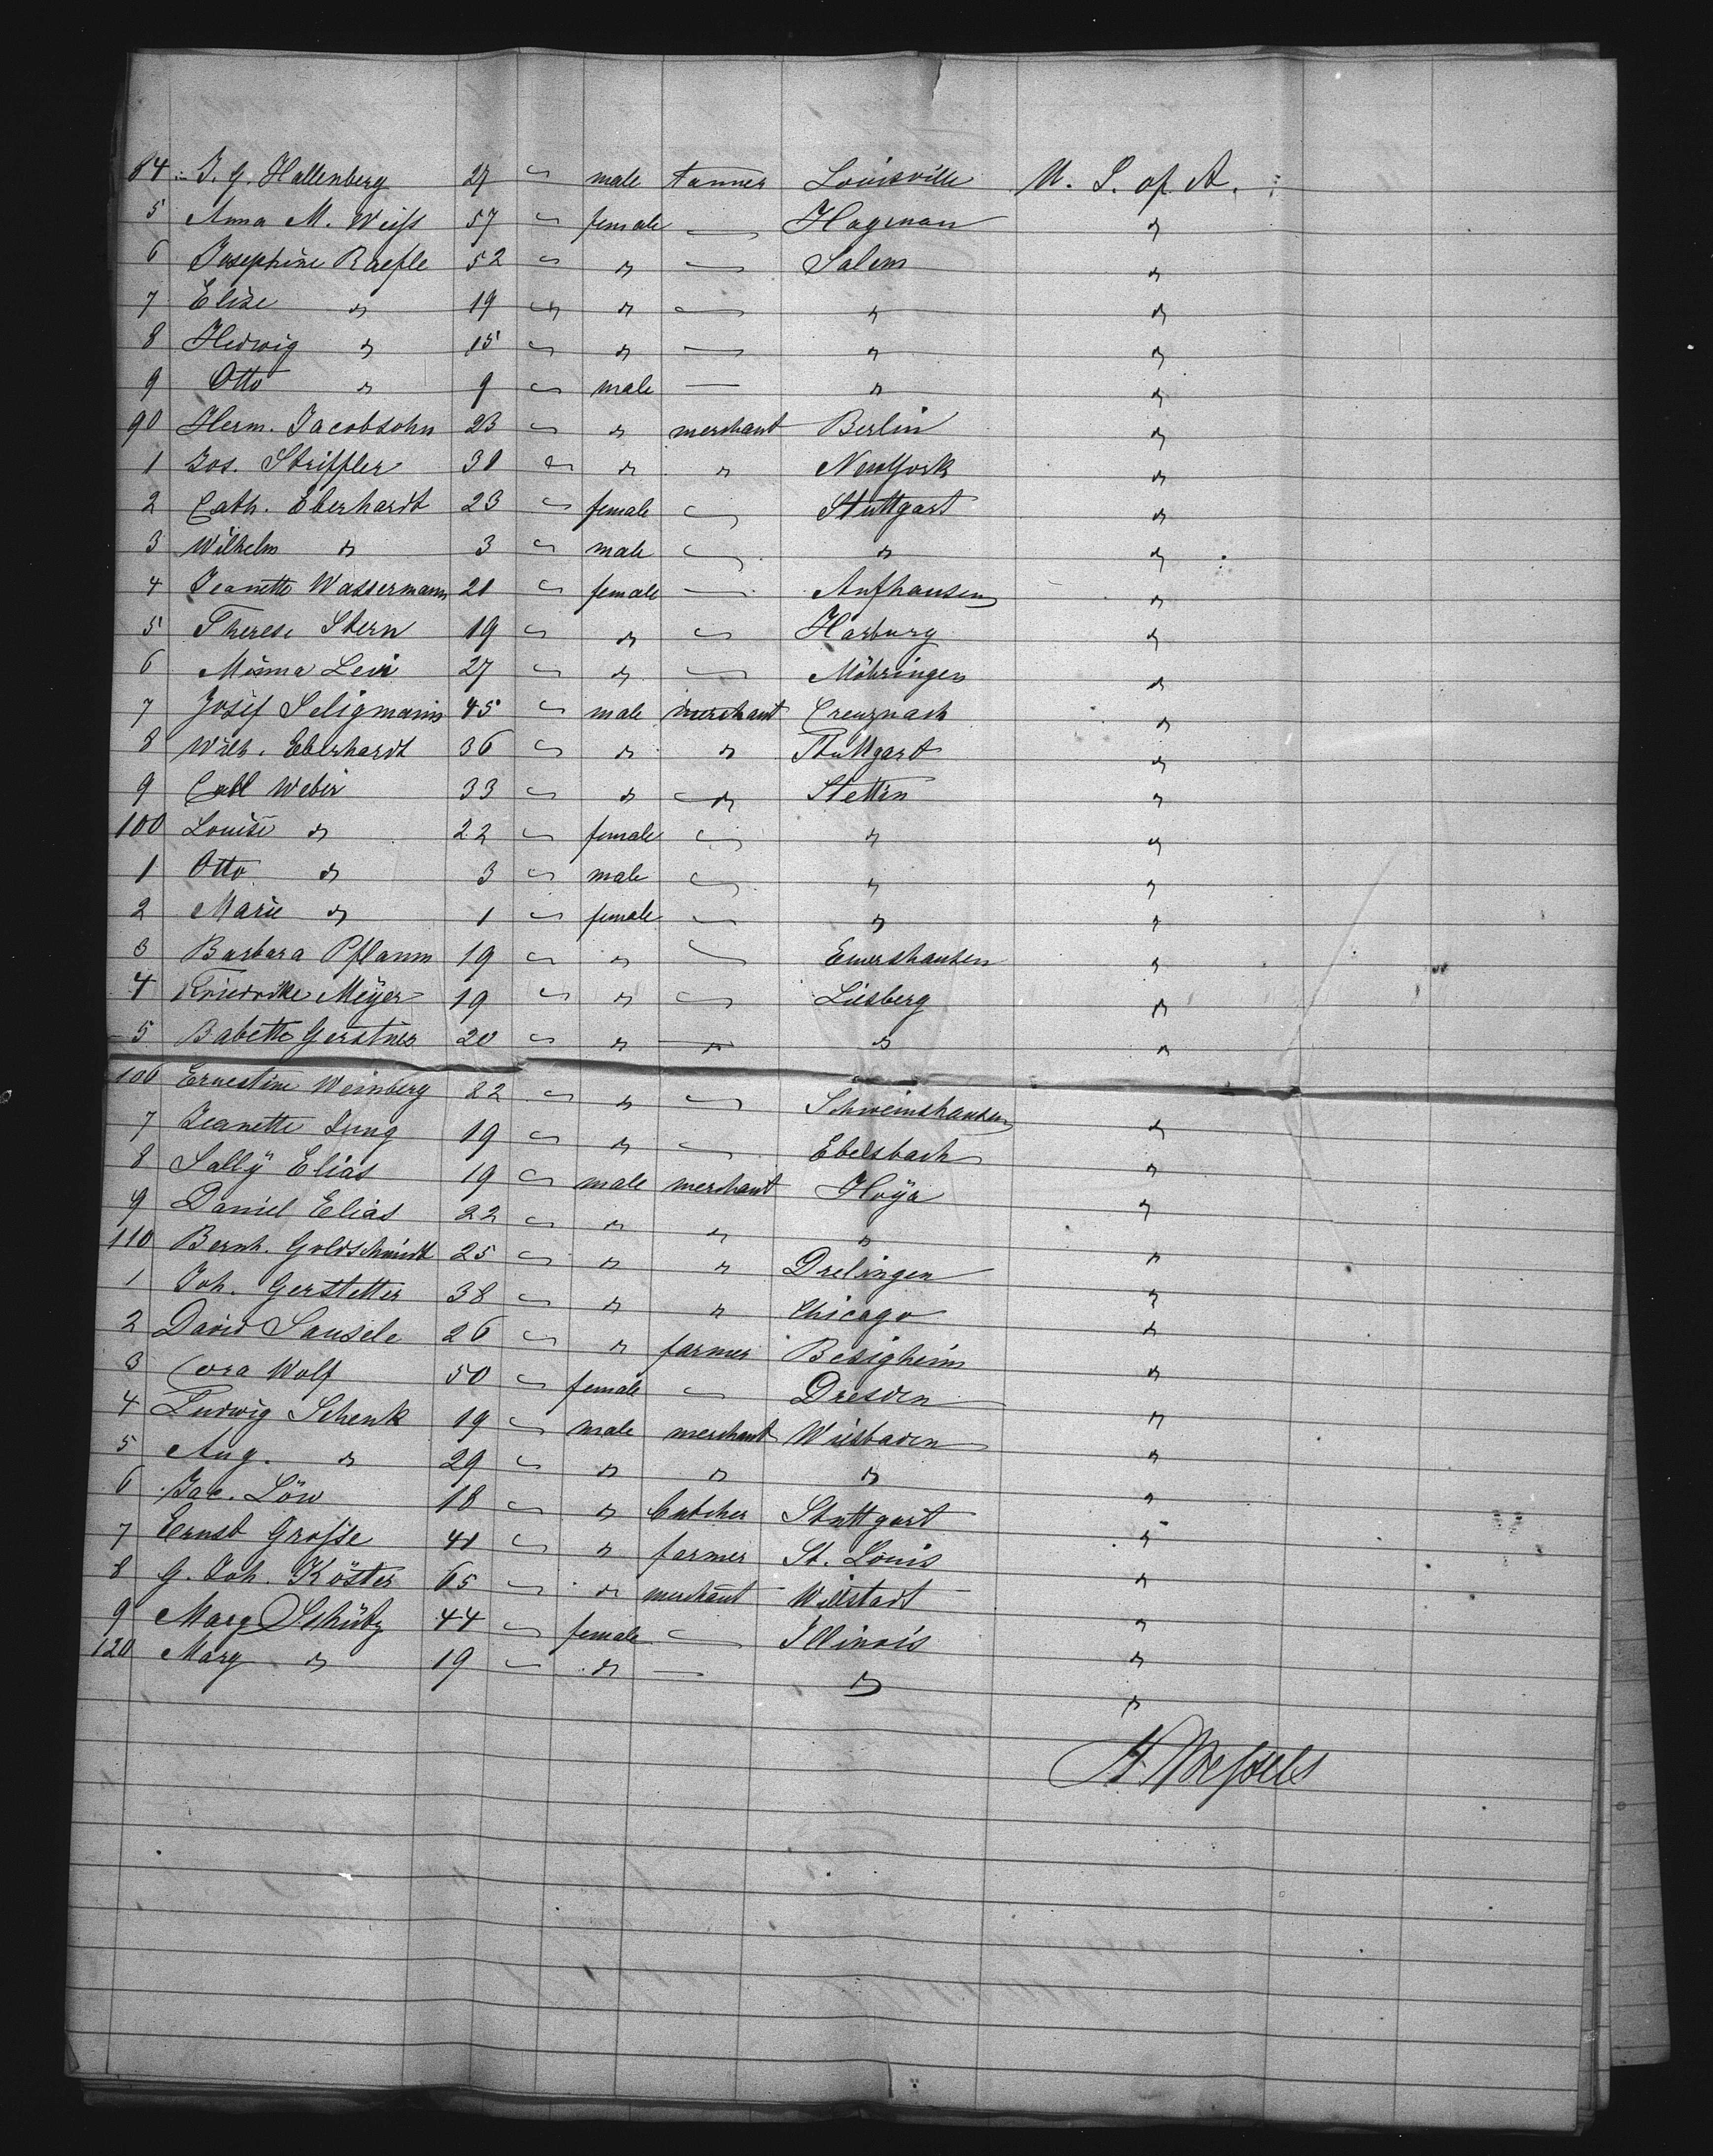 84 J. G. Hallenberg 27 " male tanner Louisville U. S. of A.
5 Anna M. Weiss 57 " female — Hagenau "
6 Josephine Raefle 52 " " — Salem "
7 Elise " 19 " " — " "
8 Hedwig " 15 " " — " "
9 Otto " 9 " male — " "
90 Herm. Jacobsohn 23 " " merchant Berlin "
1 Jos. Striffler 31 " " " New York "
2 Cath. Eberhardt 23 " female — Stuttgart "
3 Wilhelm " 3 " male — " "
4 Jeanette Wassermann 21 " female — Aufhausen "
5 Therese Stern 19 " " — Harburg "
6 Minna Levi 27 " " — Möhringen "
7 Josef Seligmann 45 " male merchant Creuznach "
8 Wilh. Eberhardt 36 " " " Stuttgart "
9 Carl Weber 33 " " " Stettin "
100 Louise " 22 " female — " "
1 Otto " 3 " male — " "
2 Marie " 1 " female — " "
3 Barbara Pflaum 19 " " — Emershausen "
4 Friedrike Meÿer 19 " " — Liesberg "
5 Babette Gerstner 20 " " — " "
106 Ernestine Weinberg 22 " " — Schweinshausen "
7 Jeanette Jung 19 " " — Ebelsbach "
8 Sallÿ Elias 19 " male merchant Hoÿa "
9 Daniel Elias 22 " " " " "
110 Bernh. Goldschmidt 25 " " " Drelingen "
1 Joh. Gerstetter 38 " " " Chicago "
2 David Sausele 26 " " farmer Besigheim "
3 Cora Wolf 50 " female — Dresden "
4 Ludwig Schenk 19 " male merchant Wiesbaden "
5 Aug. " 29 " " " " "
6 Jac. Löw 18 " " butcher Stuttgart "
7 Ernst Grosse 41 " " farmer St. Louis "
8 G. Joh. Köster 65 " " merchant Willstadt "
9 Marg Schütz 44 " female — Illinois "
120 Marg " 19 " " — " "
H. Wessels